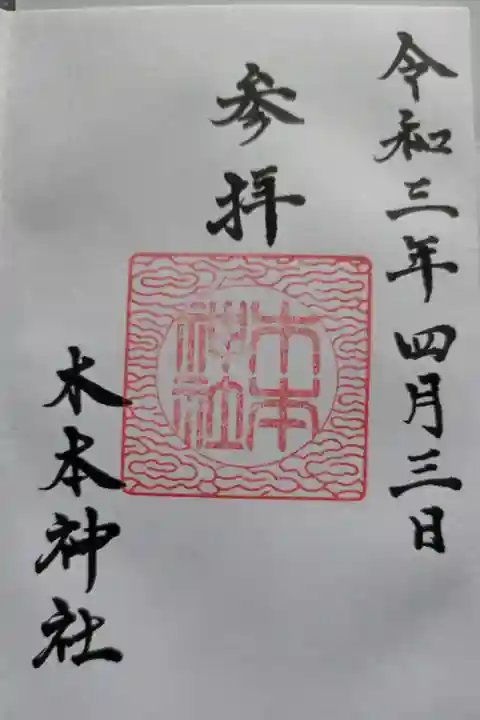 令和三年四月三日
参拝
木本神社
木本
神社